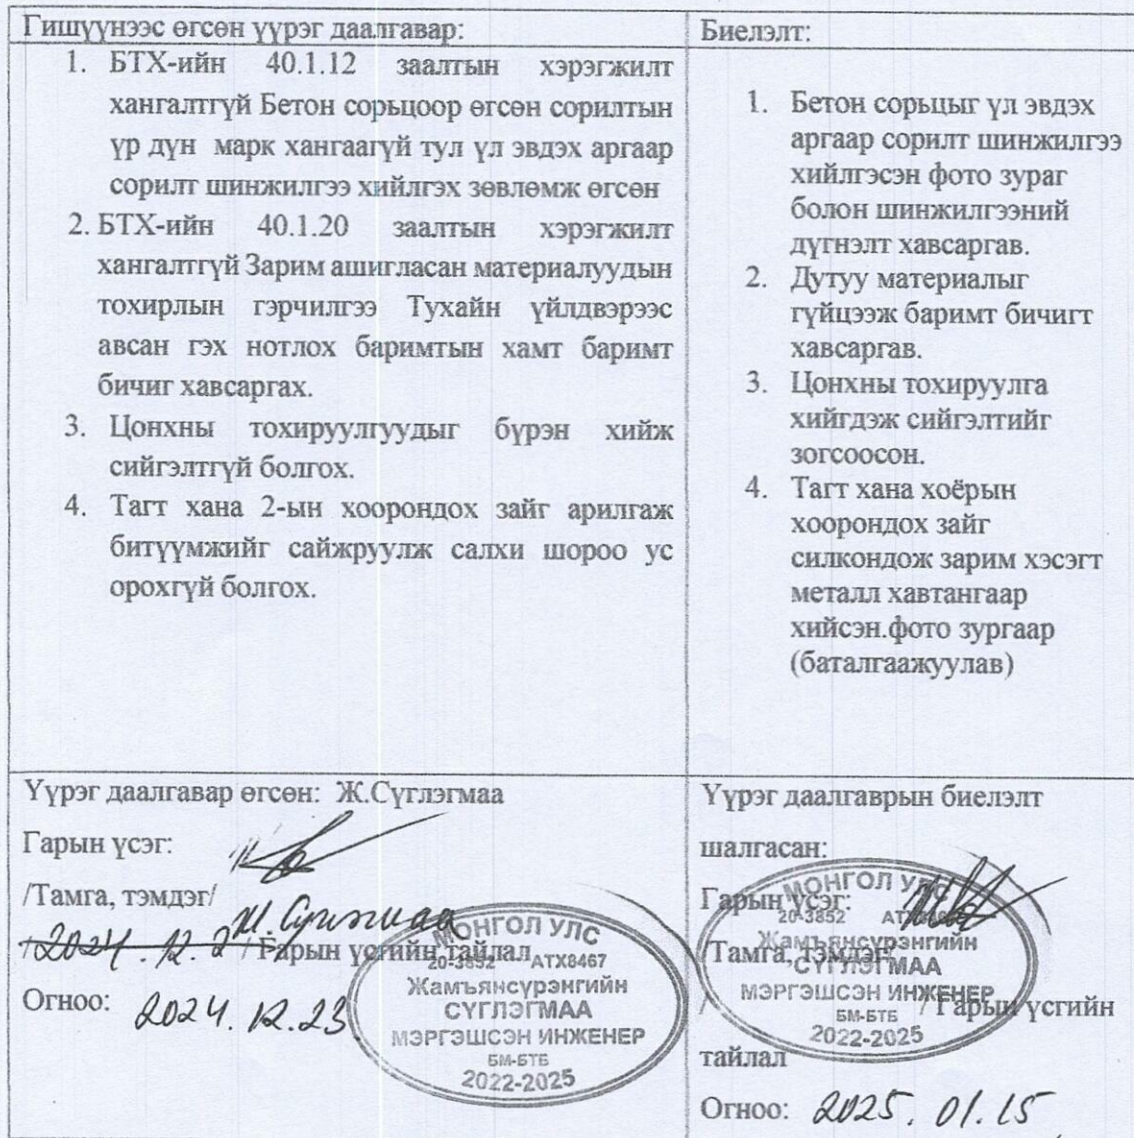 Гишүүнээс өгсөн үүрэг даалгавар:
1. БТХ-ийн 40.1.12 заалтын хэрэгжилт
хангалтгүй Бетон сорьцоор өгсөн сорилтын
үр дүн марк хангаагүй тул үл эвдэх аргаар
сорилт шинжилгээ хийлгэх зөвлөмж өгсөн
2. БТХ-ийн 40.1.20 заалтын хэрэгжилт
хангалтгүй Зарим ашигласан материалуудын
тохирлын гэрчилгээ Тухайн үйлдвэрээс
авсан гэх нотлох баримтын хамт баримт
бичиг хавсаргах.
3. Цонхны тохируулгуудыг бүрэн хийж
сийгэлтгүй болгох.
4. Тагт хана 2-ын хоорондох зайг арилгаж
битүүмжийг сайжруулж салхи шороо ус
орохгүй болгох.
Биелэлт:
1. Бетон сорьцыг үл эвдэх
аргаар сорилт шинжилгээ
хийлгэсэн фото зураг
болон шинжилгээний
дүгнэлт хавсаргав.
2. Дутуу материалыг
гүйцээж баримт бичигт
хавсаргав.
3. Цонхны тохируулга
хийгдэж сийгэлтийг
зогсоосон.
4. Тагт хана хоёрын
хоорондох зайг
силкондож зарим хэсэгт
металл хавтангаар
хийсэн.фото зургаар
(баталгаажуулав)
Үүрэг даалгавар өгсөн: Ж.Сүглэгмаа
Гарын үсэг:
/Тамга, тэмдэг/
Ж. Сүглэгмаа
/2024. 12. 2 / Гарын үсгийн тайлал
Огноо: 2024. 12. 23
МОНГОЛ УЛС
20-3852 АТХ8467
Жамъянсүрэнгийн
СҮГЛЭГМАА
МЭРГЭШСЭН ИНЖЕНЕР
БМ-БТБ
2022-2025
Үүрэг даалгаврын биелэлт
шалгасан:
Гарын үсэг:
/Тамга, тэмдэг/
/ / Гарын үсгийн
тайлал
Огноо: 2025. 01. 15
МОНГОЛ УЛС
20-3852
Жамъянсүрэнгийн
СҮГЛЭГМАА
МЭРГЭШСЭН ИНЖЕНЕР
БМ-БТБ
2022-2025